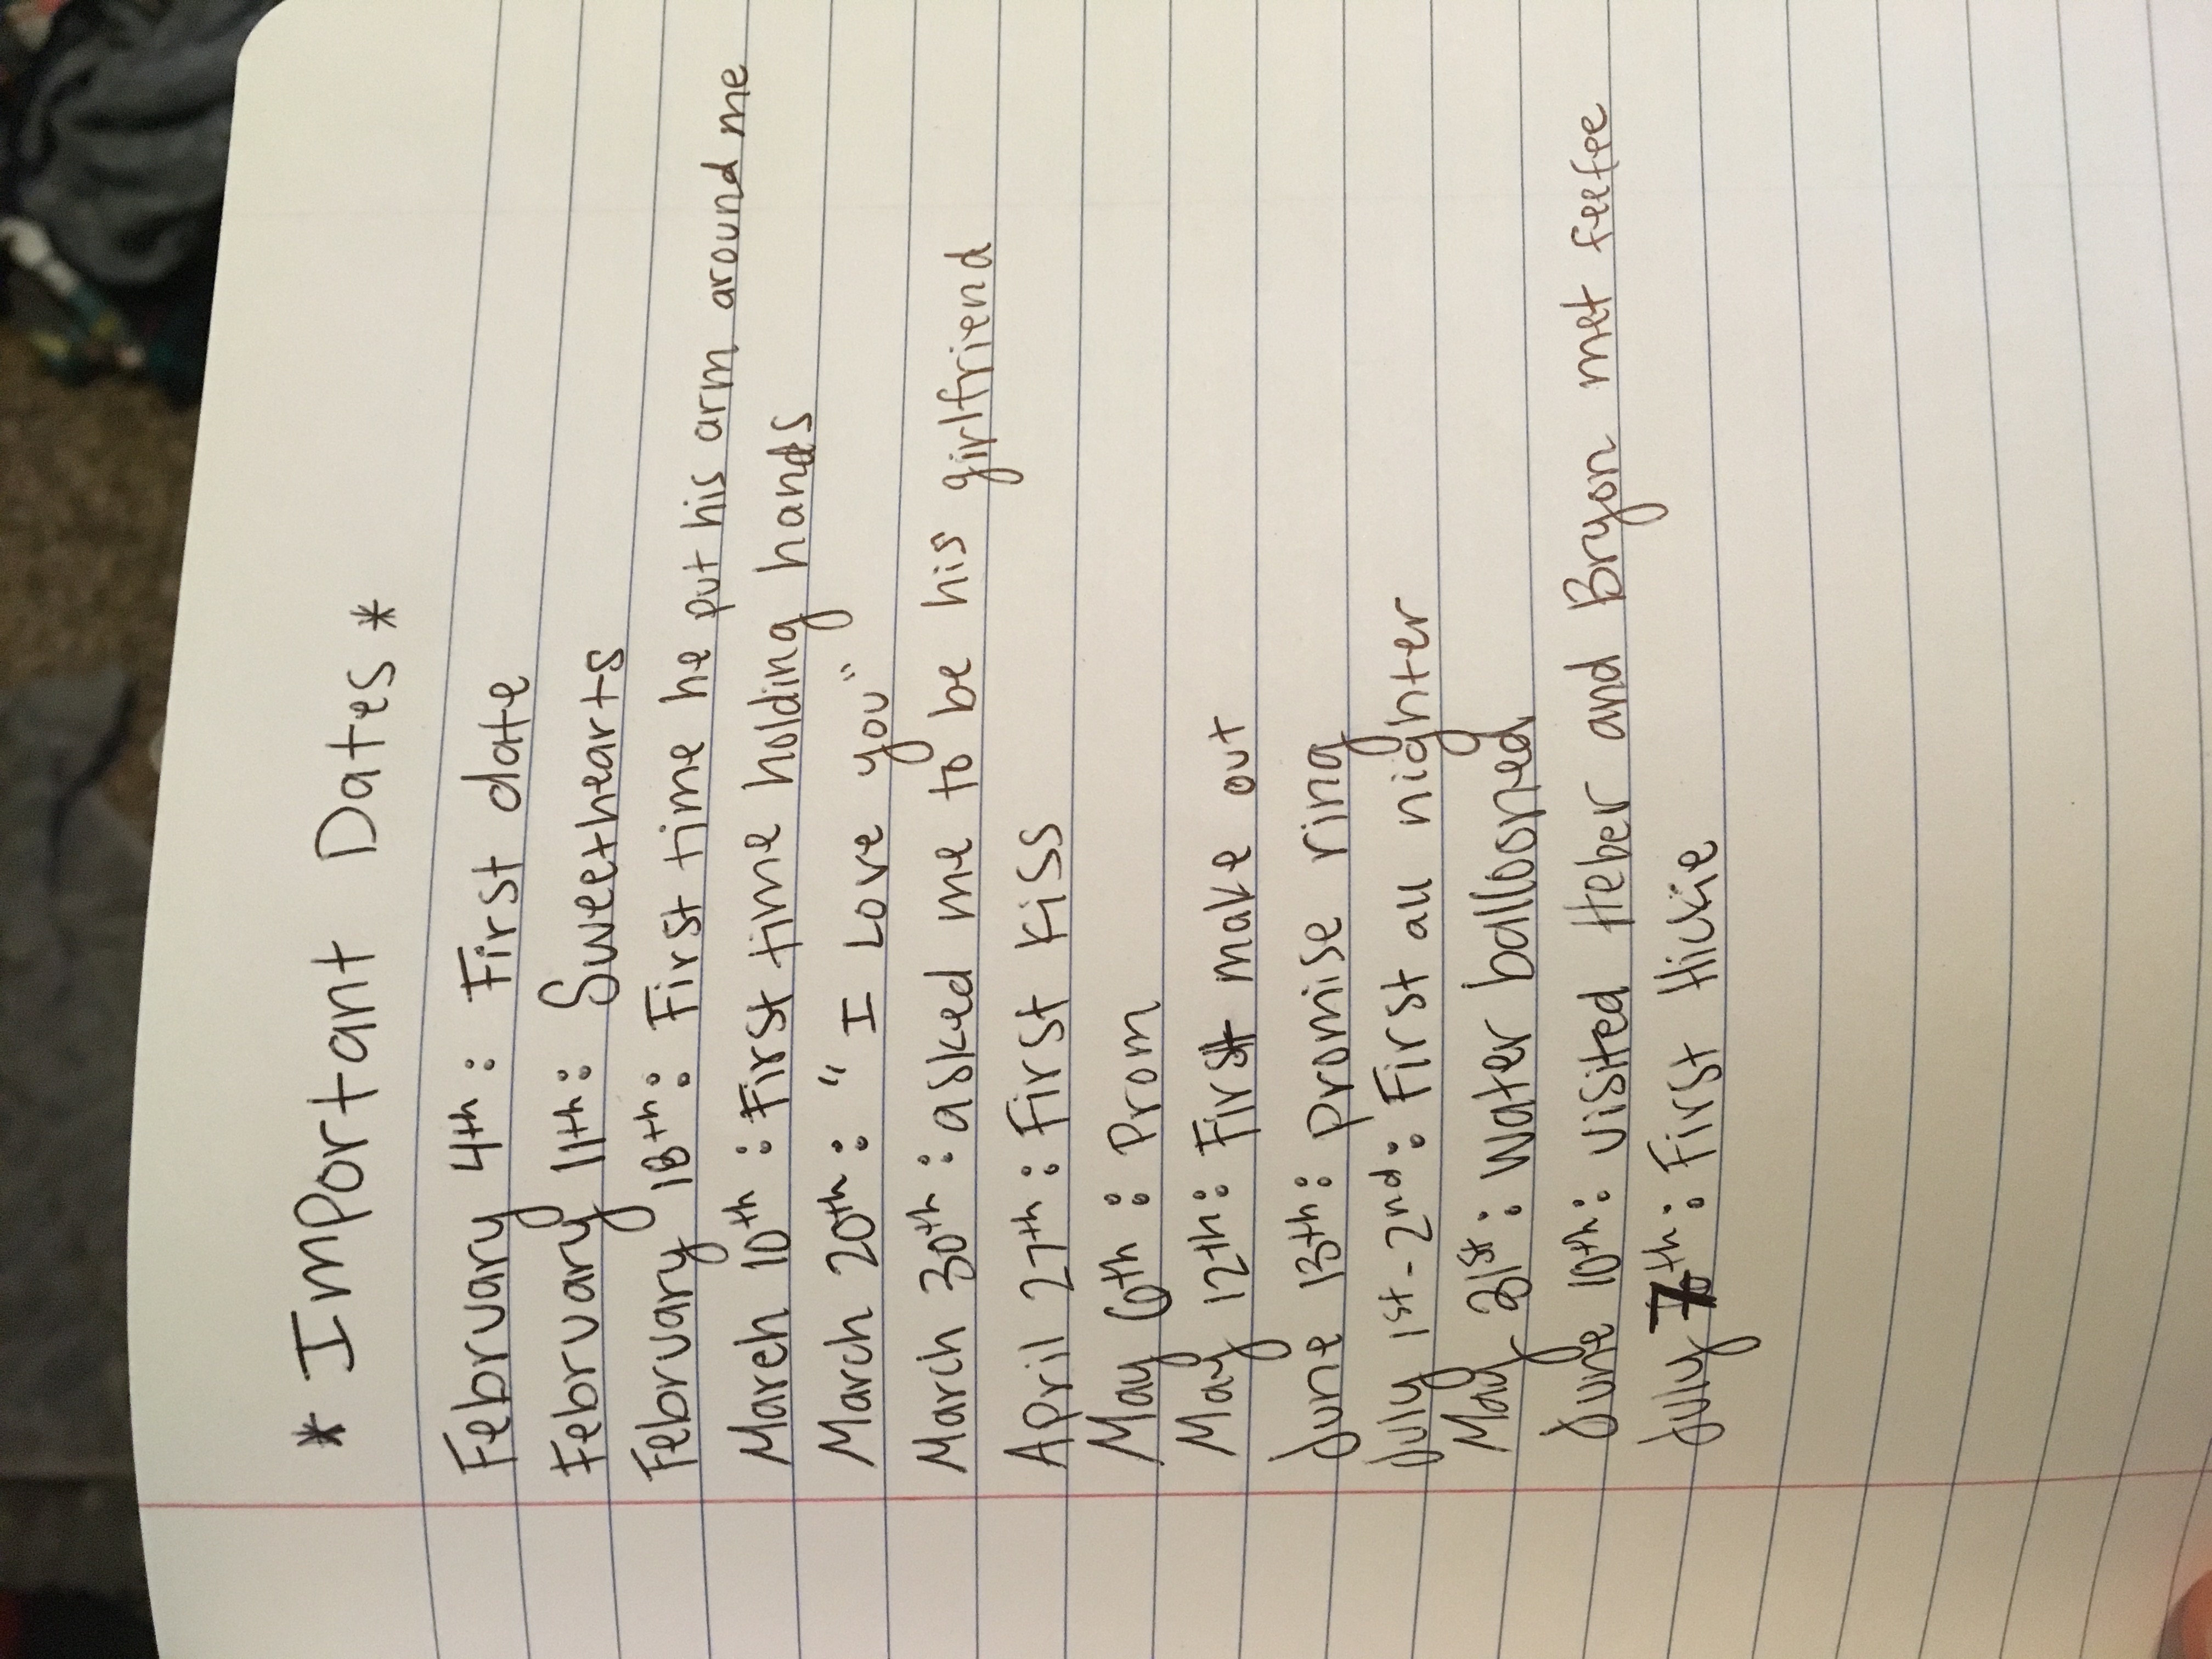 * Important Dates *
February 4th: First date
February 11th: Sweethearts
February 18th: First time he put his arm around me
March 10th: First time holding hands
March 20th: "I Love you"
March 30th: asked me to be his girlfriend
April 27th: First kiss
May 6th: Prom
May 12th: First make out
June 13th: promise ring
July 1st-2nd: First all nighter
May 31st: Water ballooned
June 10th: visited Heber and Bryon met feefee
July 7th: First Hickie